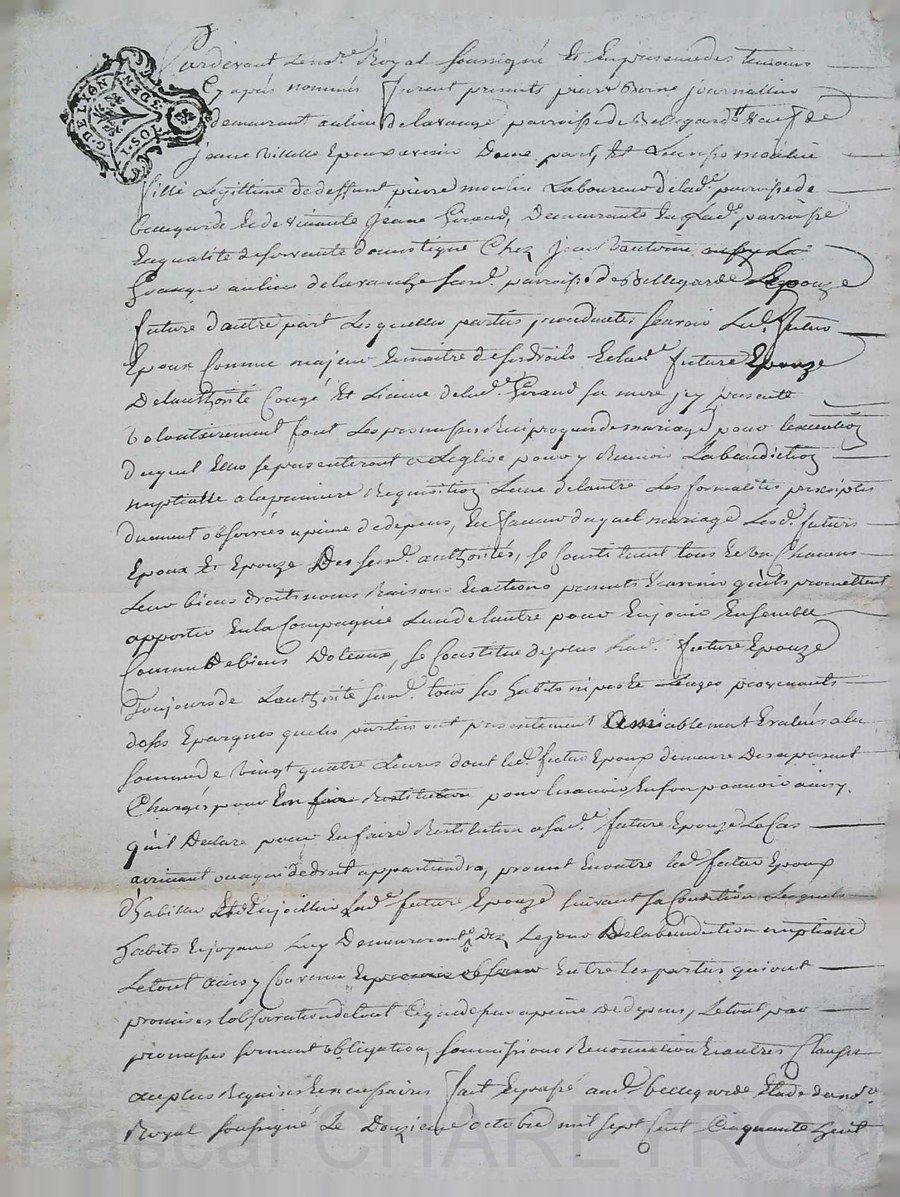 G. DE LYON
3 DEN
Pardevant Le no.re Royal soussigné Et En presence des temoins
Cy après nommés furent presents pierre Borne journallier
demeurant au lieu de lavauze parroisse de Bellegarde veuf de
jeane Epoux avenir Dune part, Et moulin
fille Legittime de deffunt pierre moulin Laboureur de lad.e parroisse de
bellegarde Et de vivante jeane Giraud, Demeurante En lad.e parroisse
En qualité de servante domestique Chez jean
au lieu de susd. parroisse de Bellegarde Epouze
future d'autre part Lesquelles parties procedantes sçavoir Led. futur
Epoux Comme majeur Et maitre de ses droits Et lad.e future Epouze
De l'authorité Congé Et Licence de lad.e Giraud sa mere jcy presente
volontairement font Les promesses Reciproques de mariage pour l'execution
duquel Elles se presenteront a L'eglise pour y Recevoir La benediction
nuptialle a la premiere Requisition Lune de lautre Les formalités prescriptes
duement observées a peine de depens, En faveur duquel mariage Lesd. futurs
Epoux Et Epouze Des susd. authorités, se Constituent tous Et un Chacuns
Leur biens droits noms Raisons Et actions presents Et avenir qu'ils promettent
apporter En la Compagnie Lun de lautre pour En jouir Ensemble
Comme De biens Dotaux, se Constitue de plus lad.e future Epouze
Toujours de L'authorité susd. tous ses habits nipes Et Linges provenants
de ses Epargnes que les parties ont presentement amiablement Evalués a la
somme de vingt quatre Livres dont led. futur Epoux demeure Des a present
Chargés pour En faire Restitution pour les avoir En son pouvoir ainsy
qu'il Declare pour En faire Restitution a sad.e future Epouze Le Cas
arrivant ou a qui de droit appartiendra, promet En outre led. futur Epoux
d'habiller Et Enjoiller lad.e future Epouze suivant sa Condition Lesquels
habits Et joyaux Luy Demeureront Dez Le jour De la benediction nuptialle
Le tout ainsy Convenu Entre Les parties qui ont
promises l'observation de tout Ce que dessus a peine de depens, Le tout par
promesses serment obligation, soumissions Renonciation Et autres Clauses
au plus Requises Et necessaires fait Et passé aud. bellegarde Etude dud. no.re
Royal soussigné Le Douzieme octobre mil sept Cent Cinquante huit
Pascal CHAREYRON